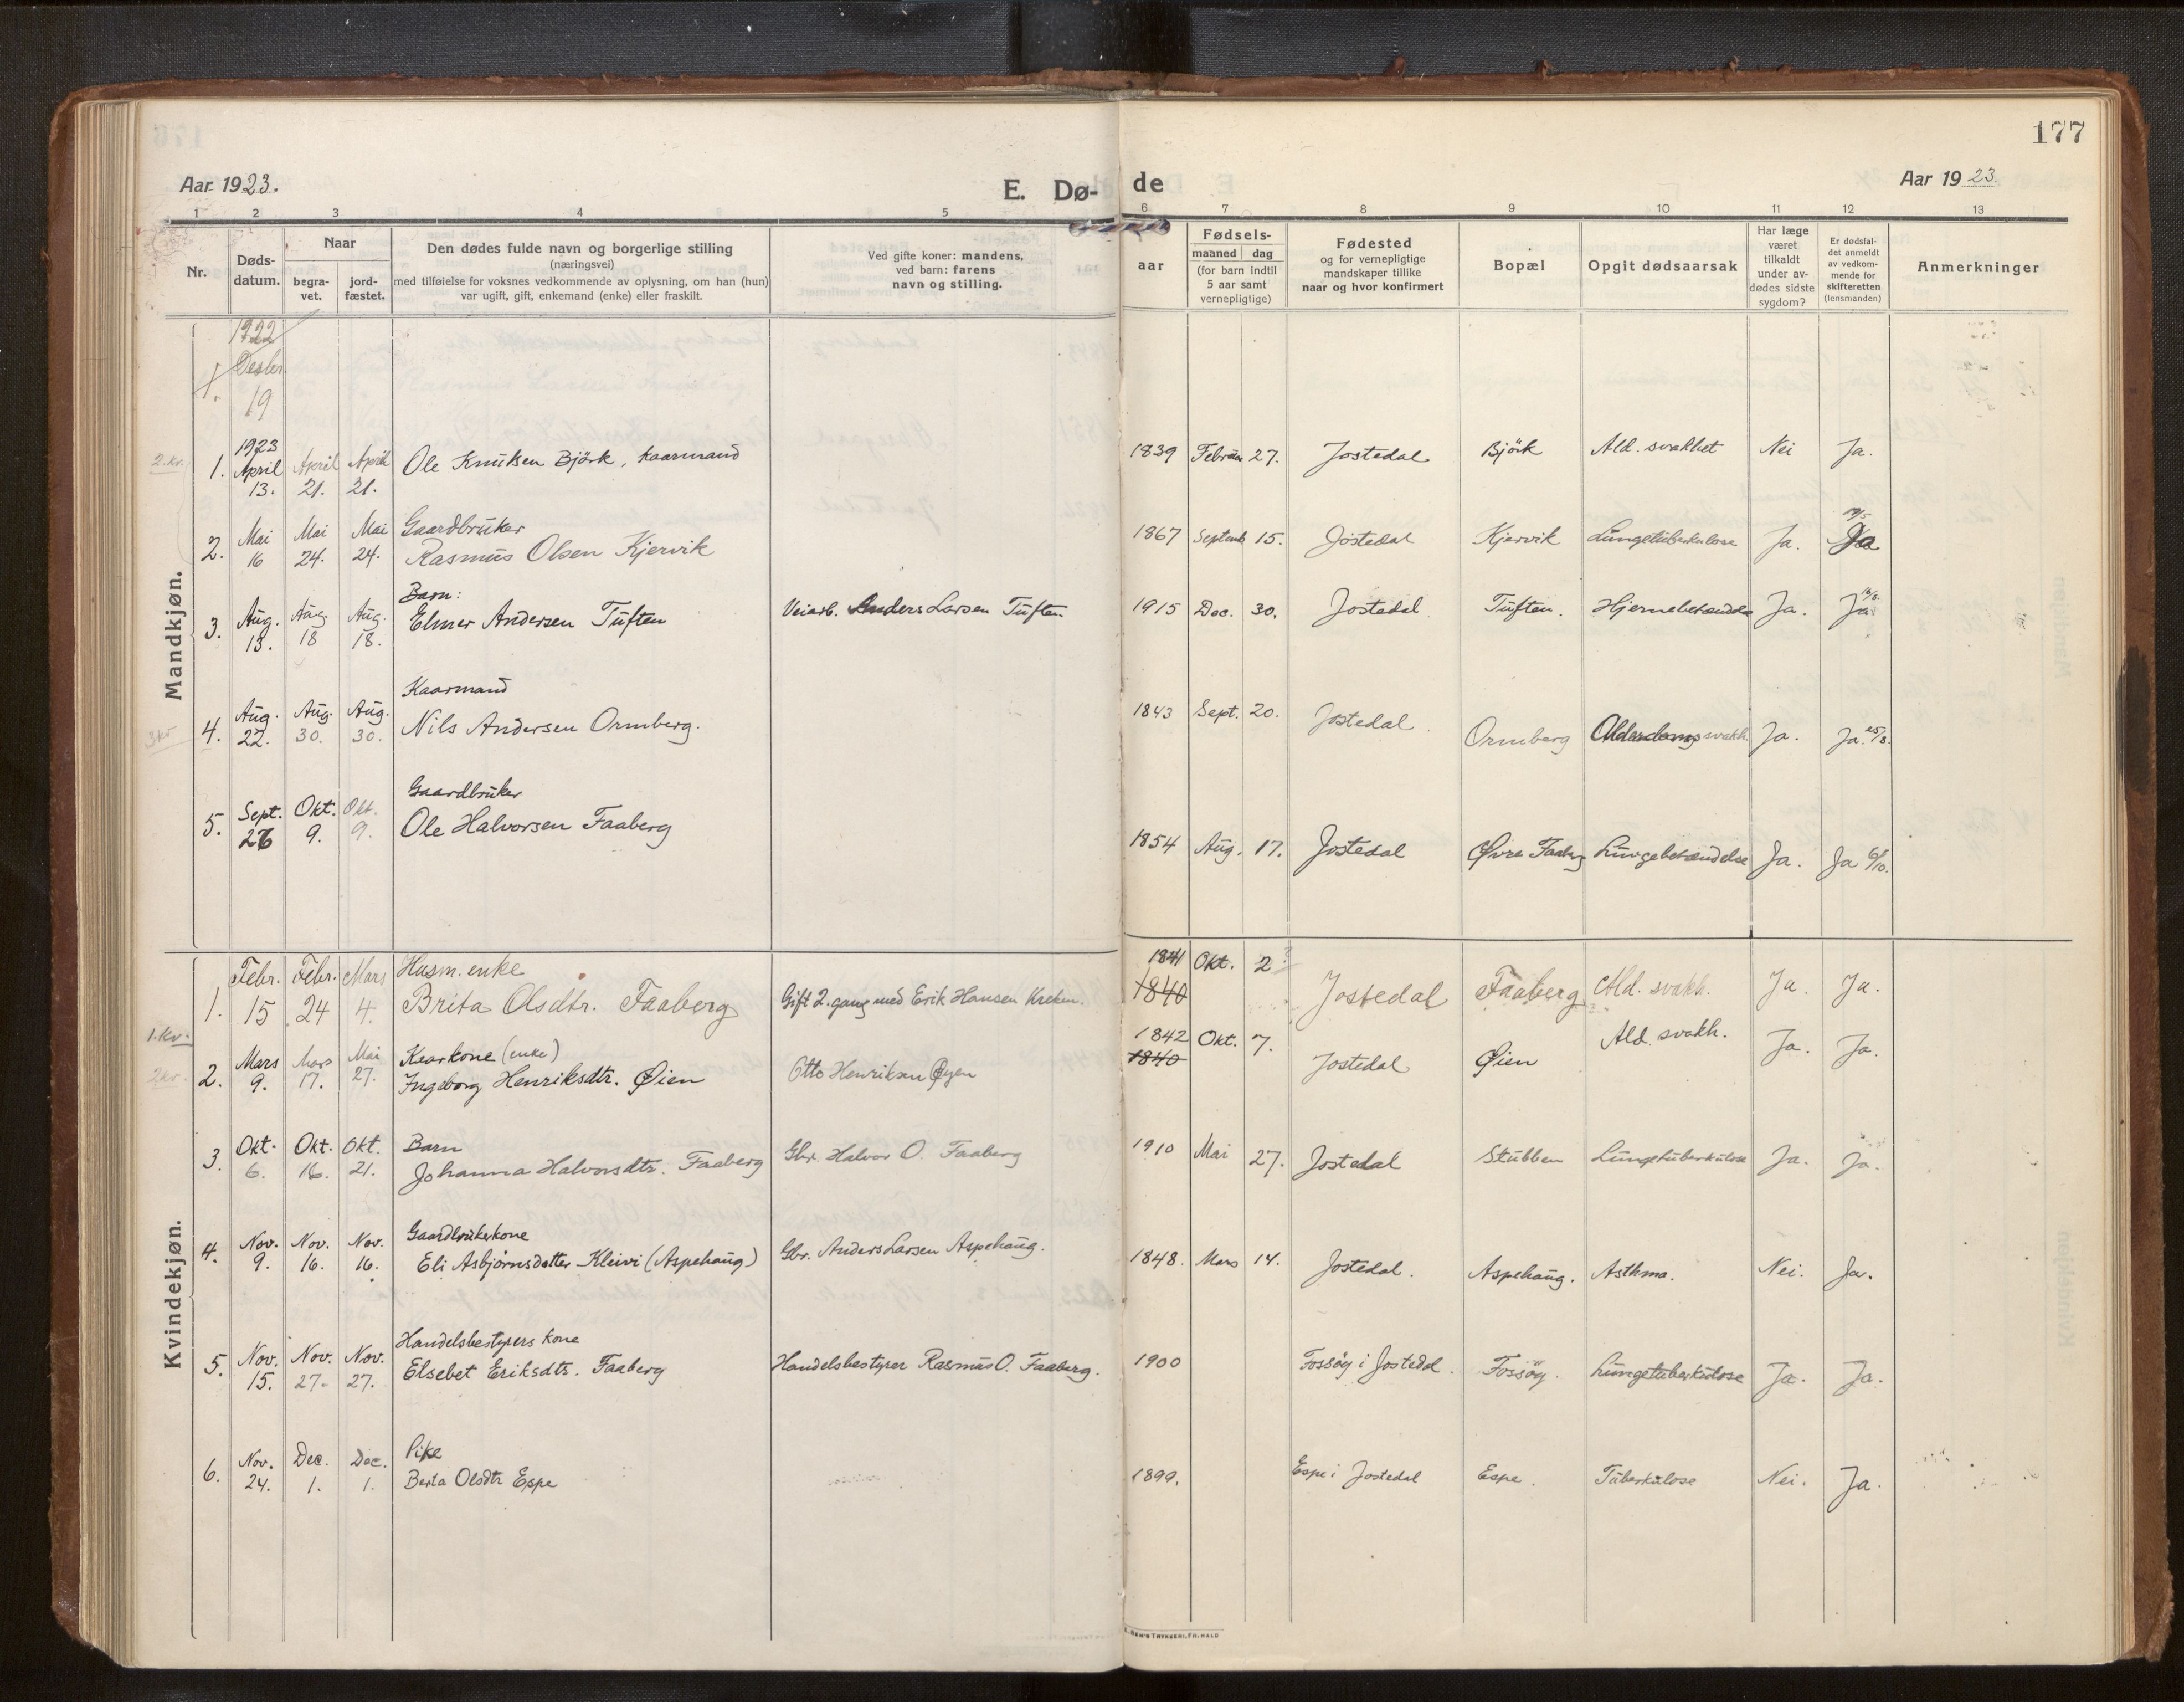 177
Aar 1923.
E. Dø-
de
Aar 1923
1 2 3 4 5 6 7 8 9 10 11 12 13
Nr.
Døds-
datum.
Naar
begra-
vet.
jord-
fæstet.
Den dødes fulde navn og borgerlige stilling
(næringsvei)
med tilføielse for voksnes vedkommende av oplysning, om han (hun)
var ugift, gift, enkemand (enke) eller fraskilt.
Ved gifte koner: mandens,
ved barn: farens
navn og stilling.
aar
Fødsels-
maaned dag
(for barn indtil
5 aar samt
vernepligtige)
Fødested
og for vernepligtige
mandskaper tillike
naar og hvor konfirmert
Bopæl
Opgit dødsaarsak
Har læge
været
tilkaldt
under av-
dødes sidste
sygdom?
Er dødsfal-
det anmeldt
av vedkom-
mende for
skifteretten
(lensmanden)
Anmerkninger
Mandkjøn.
1922
1. Desbr.
19
2. kv.
1923
1. April April April Ole Knutsen Björk, kaarmand 1839 Februar 27. Jostedal Björk Ald. svakhet Nei Ja.
13. 21. 21.
2. Mai Mai Mai Gaardbruker
16 24. 24. Rasmus Olsen Kjervik 1867 Septemb 15. Jostedal Kjervik Lungetuberkulose Ja. Ja
Barn:
3. Aug. Aug. Aug. Elmer Andersen Tuften Veiarb. Anders Larsen Tuften 1915 Dec. 30. Jostedal Tuften. Hjernebetændelse Ja. Ja
13. 18 18.
3 kv
Kaarmand
4. Aug. Aug. Aug. Nils Andersen Ormberg. 1843 Sept. 20. Jostedal Ormberg Alderdomssvakh. Ja. Ja. 25/8.
22. 30. 30.
Gaardbruker
5. Sept. Okt. Okt. Ole Halvorsen Faaberg 1854 Aug. 17. Jostedal Øvre Faaberg Lungebetændelse Ja. Ja 6/10.
26 9. 9.
Kvindekjøn.
Febr. Febr. Mars Husm. enke 1841 Okt. 2
1. 15 24 4. Brita Olsdtr. Faaberg Gift 2. gang med Erik Hansen Kreken. 1840 Jostedal Faaberg Ald. svakh. Ja. Ja.
1. kv.
2 kv.
2. Mars Mars Mai Kaarkone (enke) 1842 Okt. 7.
9. 17. 27. Ingeborg Henriksdtr. Øien Otto Henriksen Øyen 1840 Jostedal Øien Ald. svakh. Ja. Ja.
3. Okt. Okt. Okt. Barn
6. 16. 21. Johanna Halvorsdtr. Faaberg Gbr. Halvor O. Faaberg 1910 Mai 27. Jostedal Stubben Lungetuberkulose Ja. Ja.
4. Nov. Nov. Nov. Gaardbrukerkone
9. 16. 16. Eli Asbjørnsdatter Kleivi (Aspehaug) Gbr. Anders Larsen Aspehaug. 1848. Mars 14. Jostedal. Aspehaug. Asthma. Nei. Ja.
Handelsbestyrers kone
5. Nov. Nov. Nov. Elsebet Eriksdtr. Faaberg Handelsbestyrer Rasmus O. Faaberg. 1900 Fossøy i Jostedal. Fossøy. Lungetuberkulose Ja. Ja.
15. 27. 27.
6. Nov. Dec. Dec. Pike
24. 1. 1. Berta Olsdtr Espe 1899. Espe i Jostedal Espe. Tuberkulose Nei. Ja.